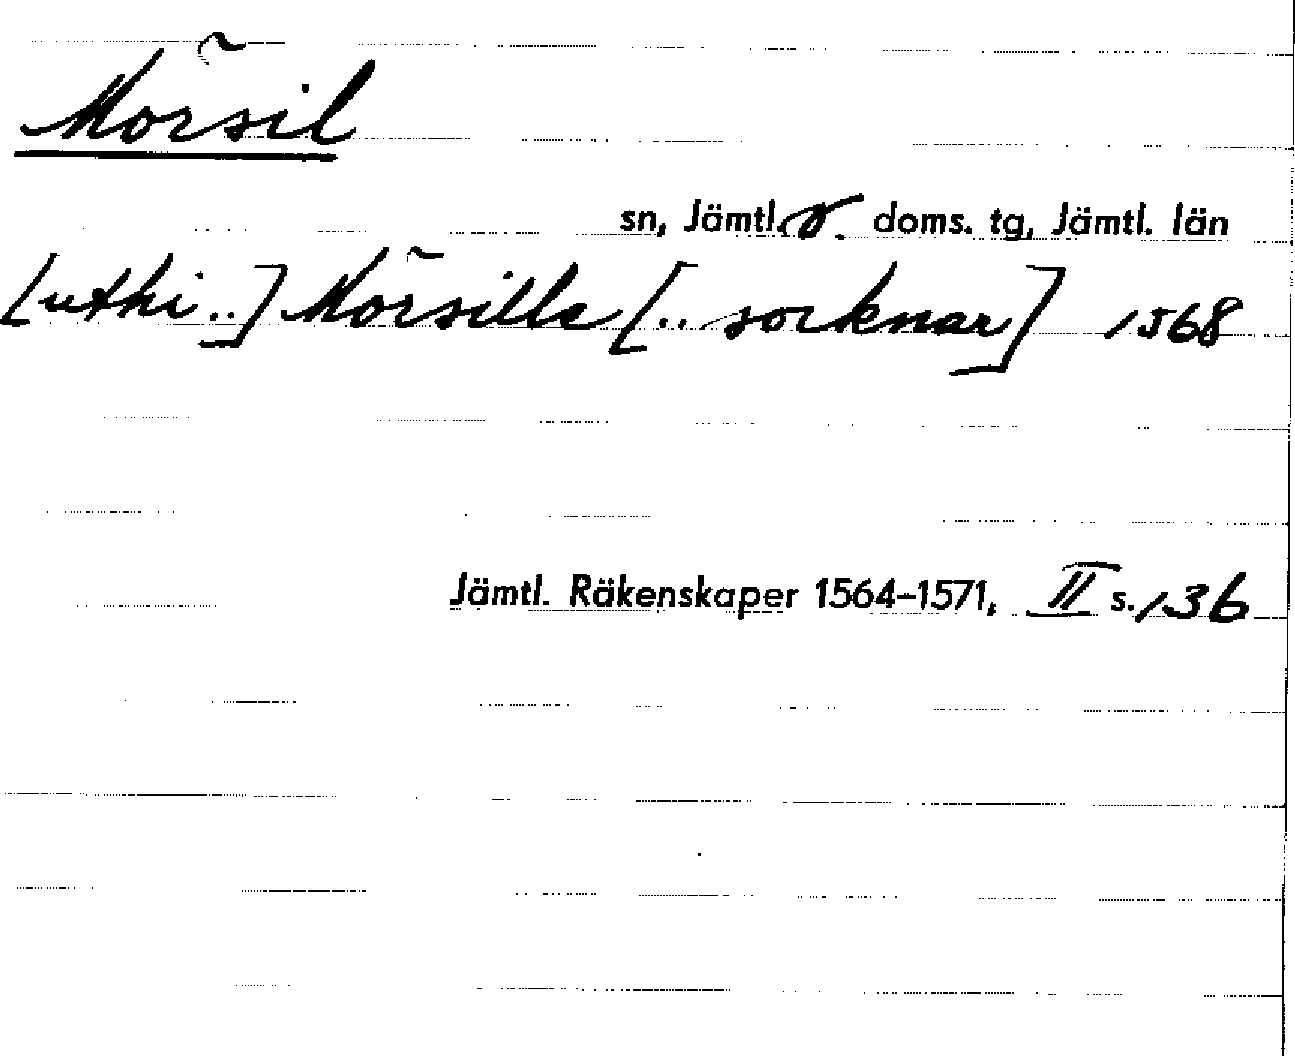 Mörsil
sn, Jämtl. v. doms. tg, Jämtl. län
[uthi ..] Mörsille [.. socknar] 1568
Jämtl. Räkenskaper 1564-1571, II s. 136